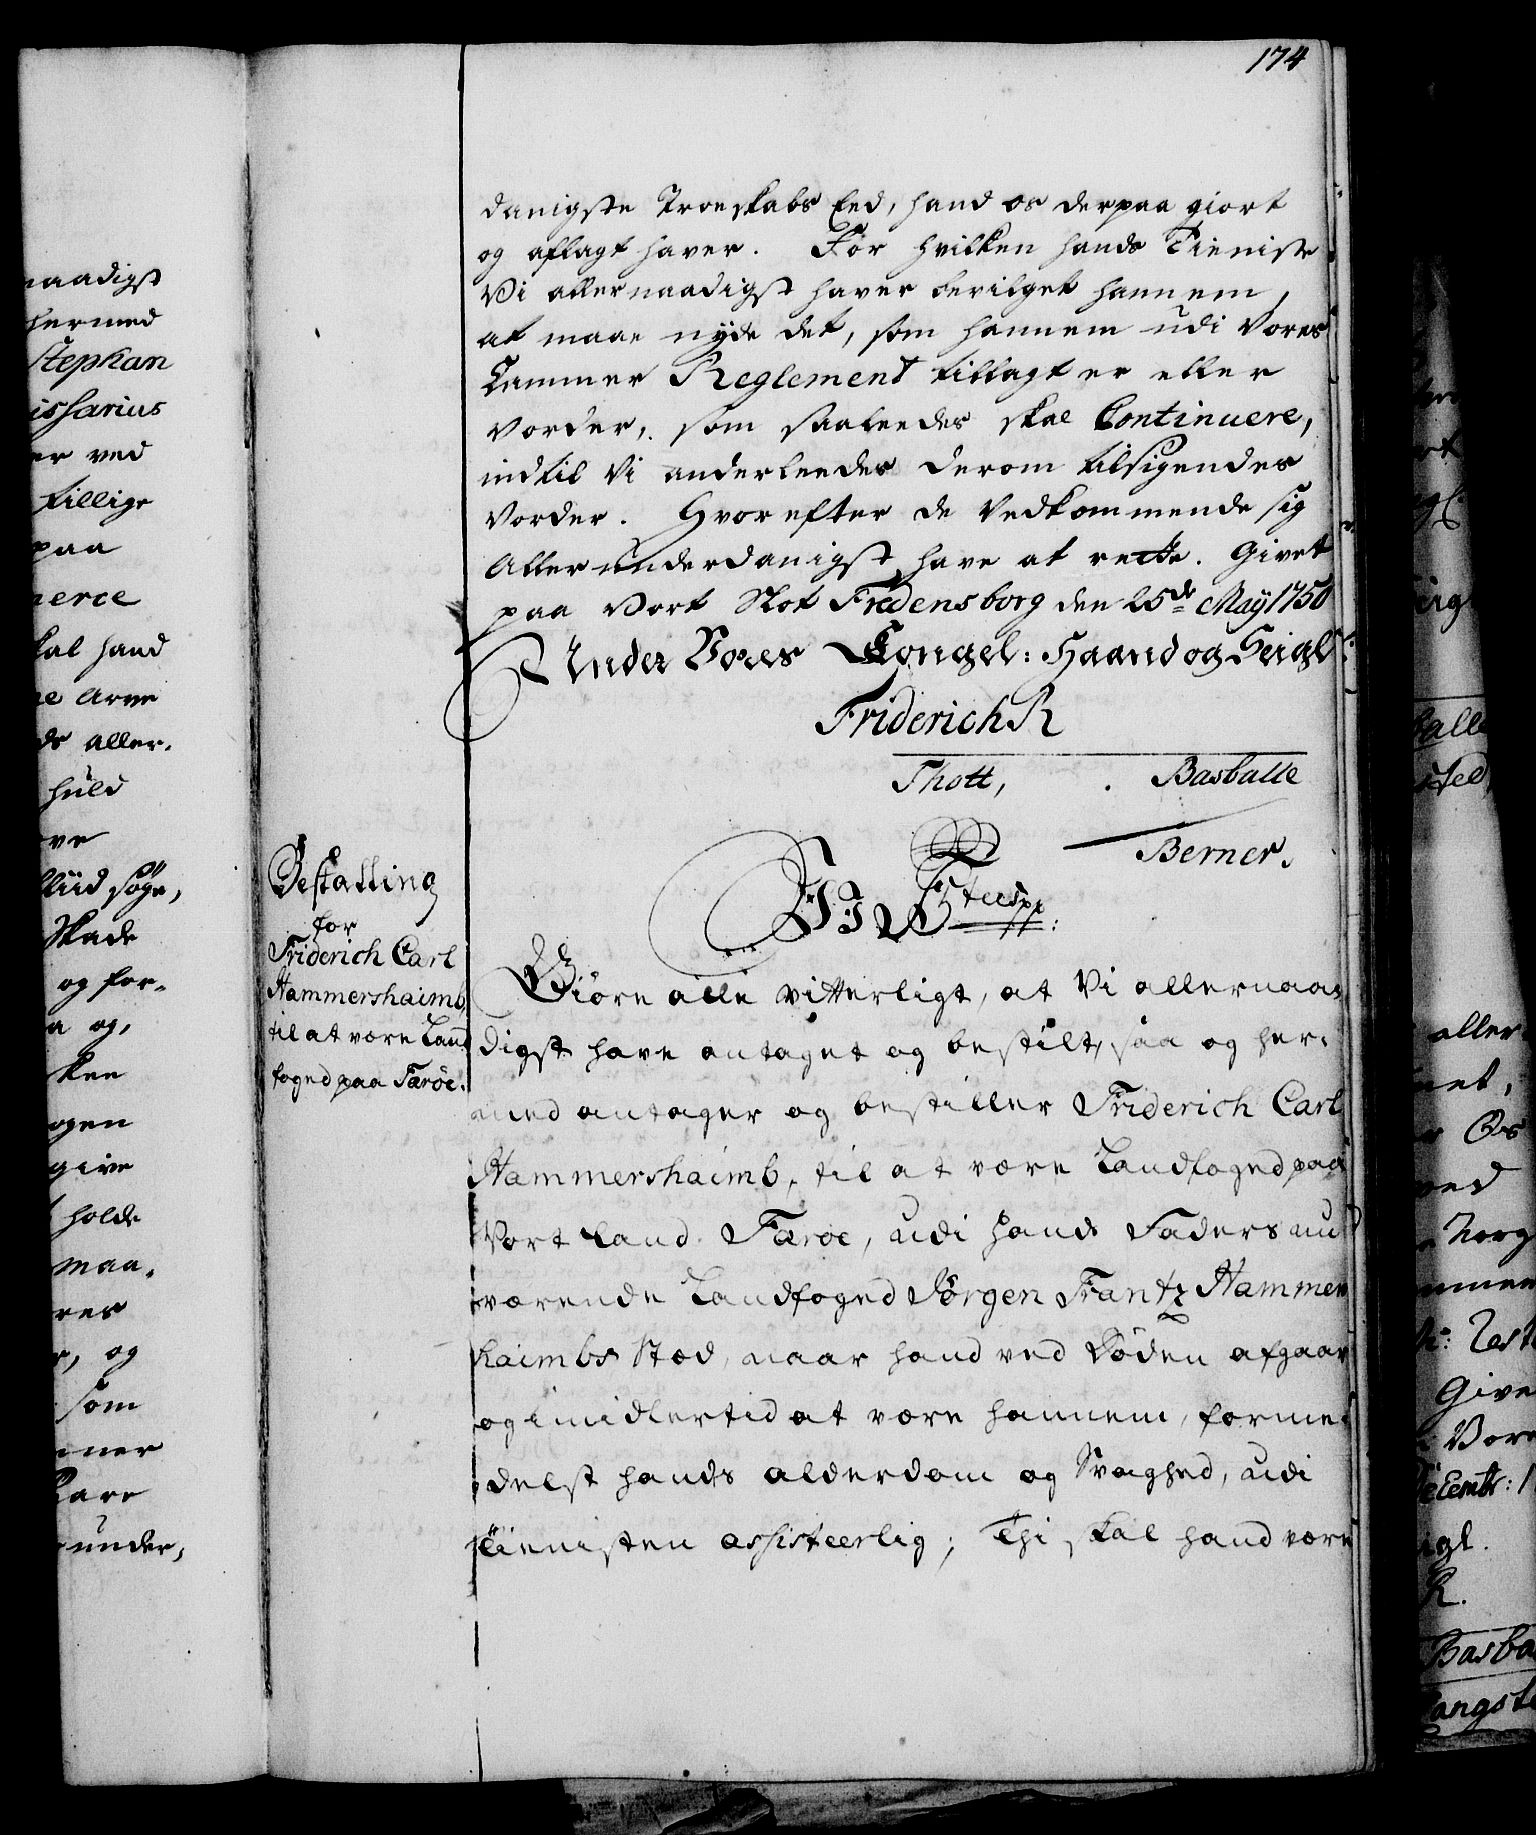 174
danigste Troeskabs Eed, hand os derpaa giort
og aflagt haver. For hvilken hands Tieniste
Vi allernaadigst haver bevilget hannem,
at maae nyde det, som hannem udi Vores
Cammer Reglement tillagt er eller
vorder, som saaleedes skal Continuere,
indtil Vi anderleedes derom tilsigendes
vorder. Hvorefter de Vedkommende sig
allerunderdanigst have at rette. Givet
paa Vort Slot Fredensborg den 25de May 1750
Under Vores Kongel: Haand og Seigl
Friderich R
Thott, Basballe
Berner.
Bestalling
for
Friderich Carl
Hammershaimb,
til at være Land
foged paa Færöe.
Wi F 5te
Giöre alle vitterligt, at Vi allernaa-
digst have antaget og bestilt, saa og her-
med antager og bestiller Friderich Carl
Hammershaimb, til at være Landfoged paa
Vort Land Færöe, udi hands Faders nu
værende Landfoged Jörgen Frantz Hammers
haimbs Stæd, naar hand ved Döden afgaar
og imidlertid at være hannem, forme-
delst hands alderdom og Svaghed, udi
Tienisten assisteerlig; Thi skal hand være
naadigst
hermed
Stephan
issarius
er ved
tillige
paa
merce
kal hand
ne Arve
ds aller-
huld
ove
fliid söge,
Skade
og for-
a og,
ken
ogen
give
holde
maa-
res
r, og
som
mer
have
under,
aller
Os
ved
Norg
Give
Vore
Decembr: 1
R.
Basba